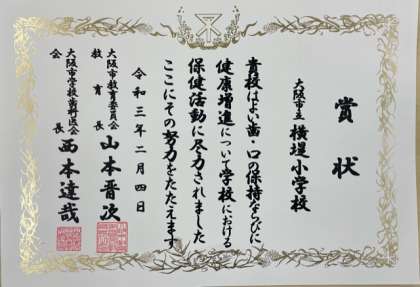 賞状
大阪市立 横堤小学校
貴校はよい歯・口の保持ならびに
健康増進について学校における
保健活動に尽力されました
ここにその努力をたたえます
令和三年二月四日
大阪市教育委員会
教育長 山本晋次
大阪市学校歯科医会
会長 西本達哉